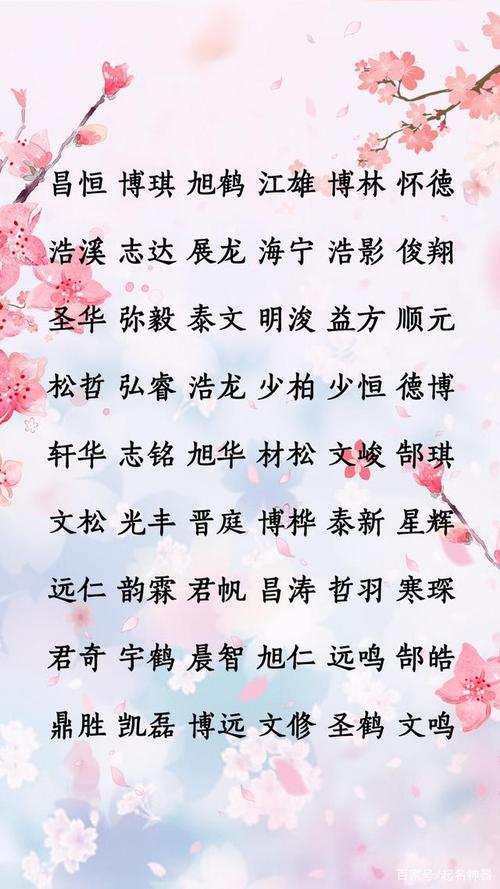 昌恒 博琪 旭鹤 江雄 博林 怀德
浩溪 志达 展龙 海宁 浩影 俊翔
圣华 弥毅 泰文 明浚 益方 顺元
松哲 弘睿 浩龙 少柏 少恒 德博
轩华 志铭 旭华 材松 文峻 郜琪
文松 光丰 晋庭 博桦 泰新 星辉
远仁 韵霖 君帆 昌涛 哲羽 寒琛
君奇 宇鹤 晨智 旭仁 远鸣 郜皓
鼎胜 凯磊 博远 文修 圣鹤 文鸣
百家号/起名神器